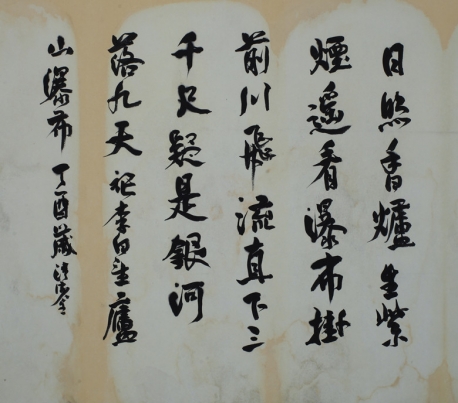 日照香爐生紫
煙遙看瀑布掛
前川飛流直下三
千尺疑是銀河
落九天 記李白望廬
山瀑布 丁酉歲